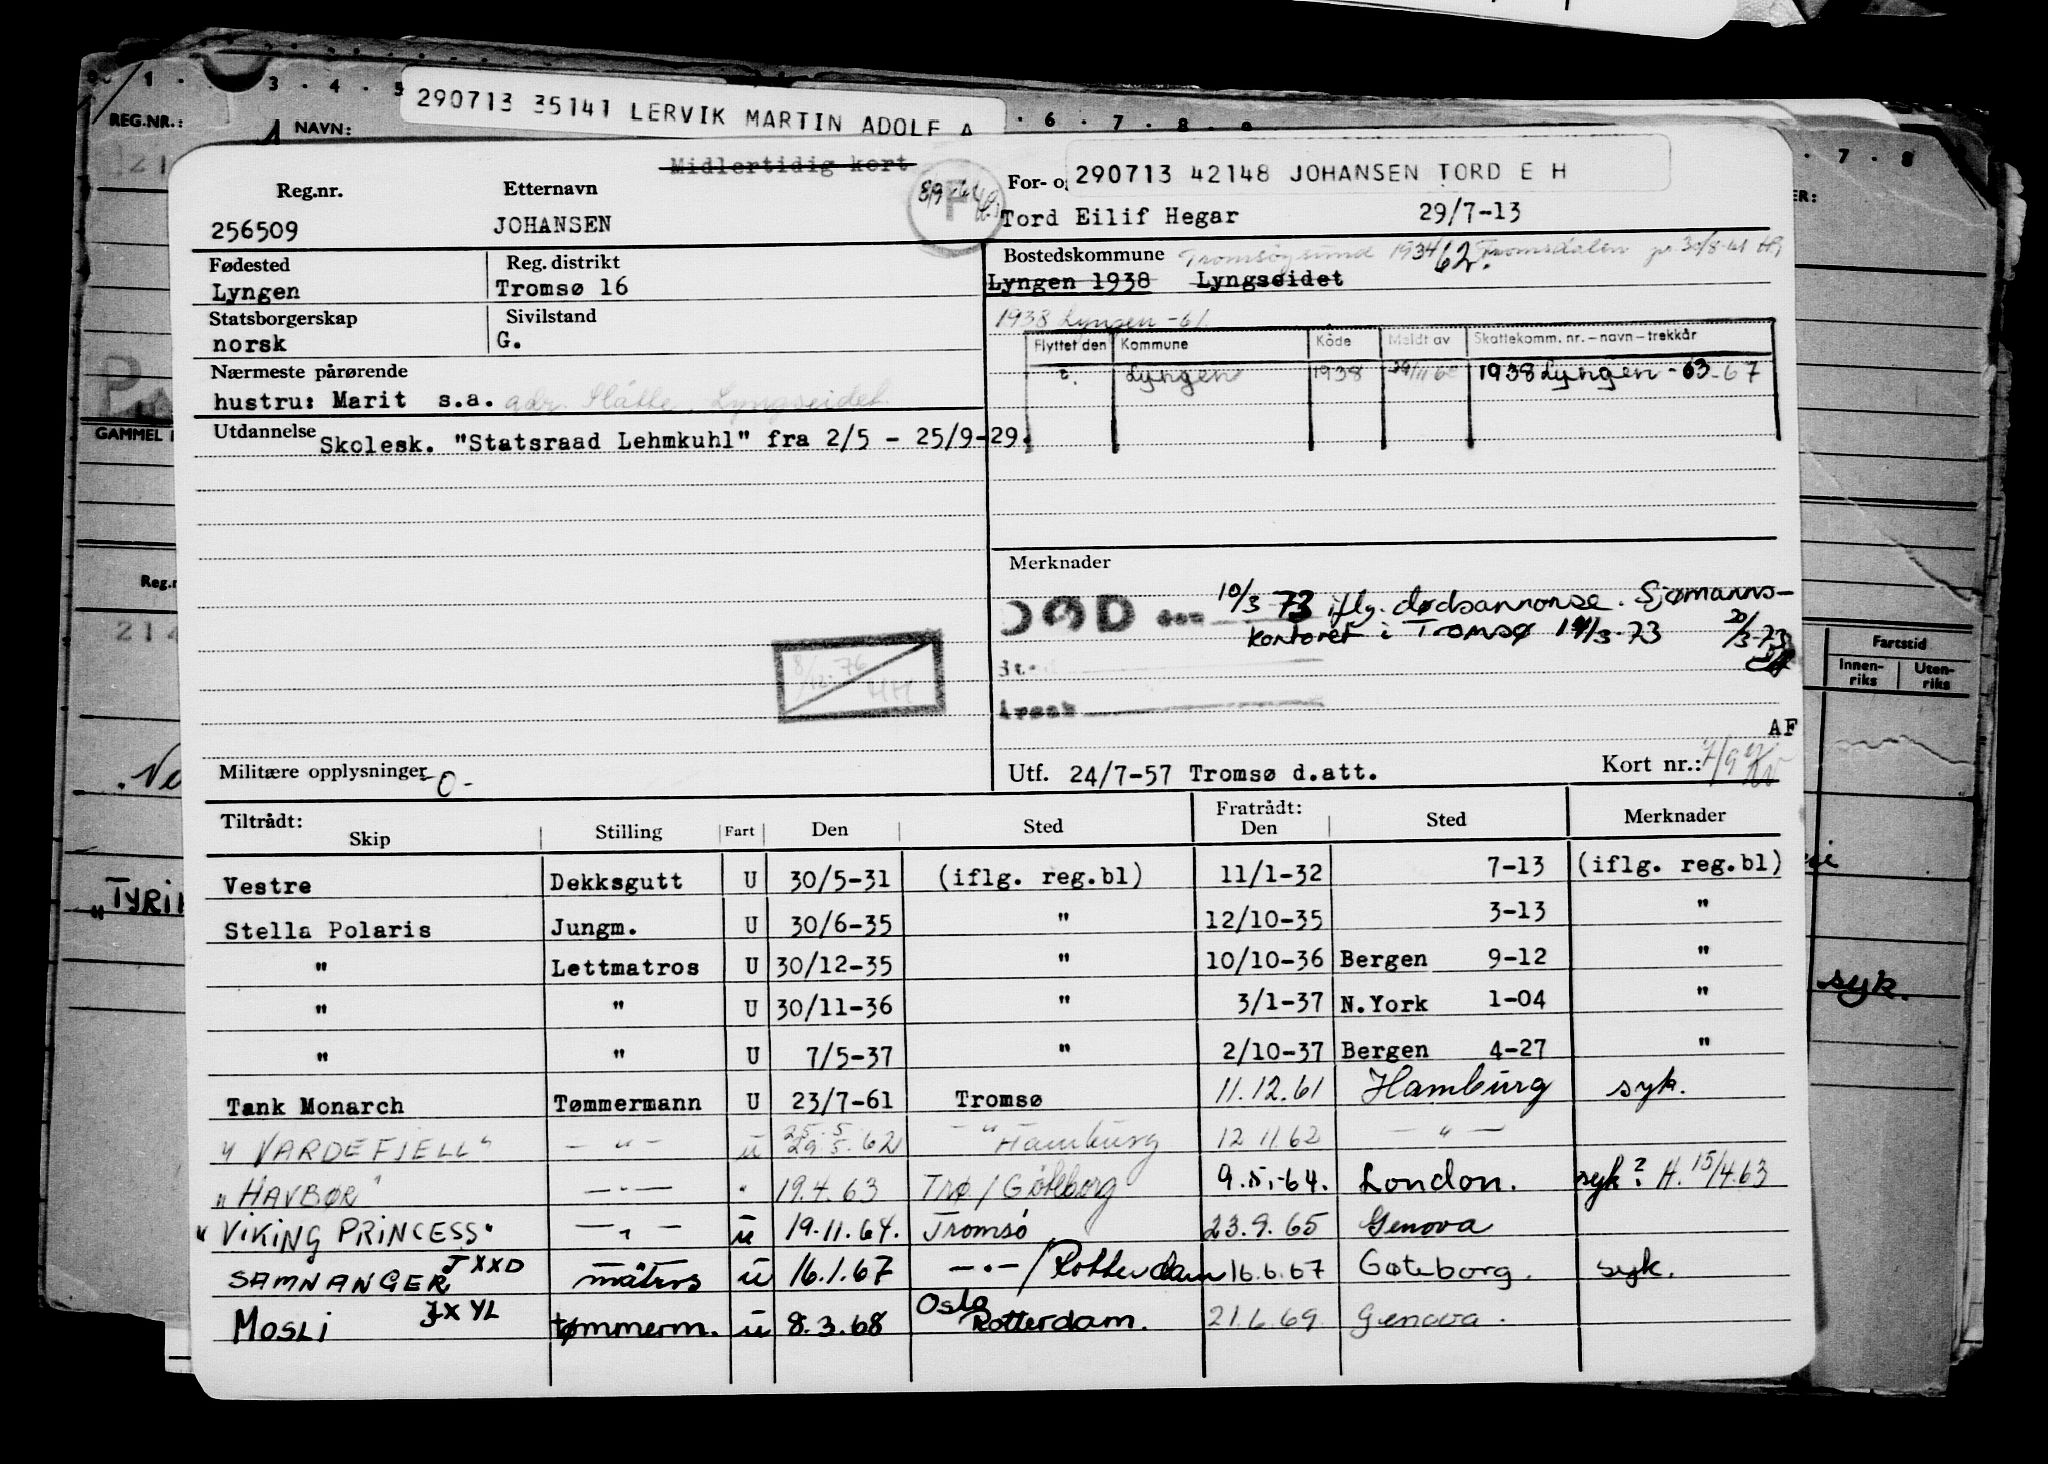 1 · 3 · 4 · 5
290713 35141 LERVIK MARTIN ADOLF A
· 6 · 7 · 8 · 9
· 7 · 8
REG.NR.:
NAVN:
Midlertidig kort
290713 42148 JOHANSEN TORD E H
Reg.nr. Etternavn For- o
256509 JOHANSEN Tord Eilif Hegar 29/7-13
Fødested Reg. distrikt Bostedskommune Tromsøysund 1934/62. Tromsdalen
Lyngen Tromsø 16 Lyngen 1938 Lyngseidet
Statsborgerskap Sivilstand 1938 Lyngen -61.
norsk G.
Flyttet den Kommune Kode Meldt av Skattekomm. nr. – navn – trekkår
Lyngen 1938 1938 Lyngen - 63-67
Nærmeste pårørende
hustru: Marit s.a. adr. Slåtte, Lyngseidet
GAMMEL
Utdannelse Skolesk. "Statsraad Lehmkuhl" fra 2/5 - 25/9-29.
Merknader
DØD den 10/3 73 iflg. dødsannonse. Sjømanns-
kontoret i Tromsø 14/3-73 20/3-73
Årsak
8/12-76 HH
AF
Fartstid
Innen-riks Uten-riks
Militære opplysninger -0- Utf. 24/7-57 Tromsø d.att. Kort nr.:
Tiltrådt: Fratrådt:
Skip Stilling Fart Den Sted Den Sted Merknader
Vestre Dekksgutt U 30/5-31 (iflg. reg.bl) 11/1-32 7-13 (iflg. reg.bl)
Stella Polaris Jungm. U 30/6-35 " 12/10-35 3-13 "
" Lettmatros U 30/12-35 " 10/10-36 Bergen 9-12 "
" " U 30/11-36 " 3/1-37 N.York 1-04 "
" " U 7/5-37 " 2/10-37 Bergen 4-27 "
Tank Monarch Tømmermann U 23/7-61 Tromsø 11.12.61 Hamburg syk.
"VARDEFJELL" - " - u 25.5. 29.5.62 - " Hamburg 12 11.62 - " -
"HAVBØR" - " - " 19.4.63 Trø/Göteborg 9.5.-64. London. syk? H. 15/4.63
"VIKING PRINCESS" - " - u 19.11.64. Tromsø 23.9.65 Genova
SAMNANGER JXXD matros u 16.1.67 - " -/Rotterdam 16.6.67 Gøteborg. syk.
MOSLI JXYL tømmerm. u 8.3.68 Oslo Rotterdam. 21.6.69 Genova.
syk.